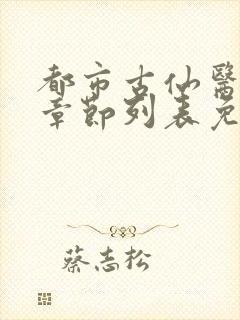 都市古仙醫
章節列表免
蔡志松